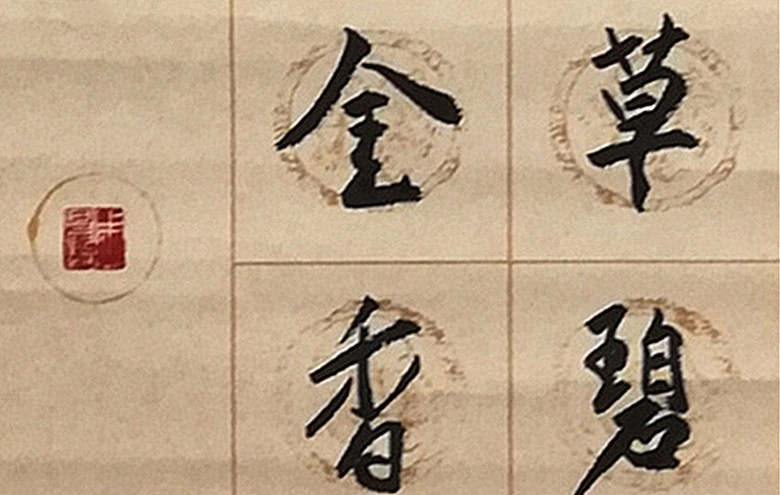 草碧
金香